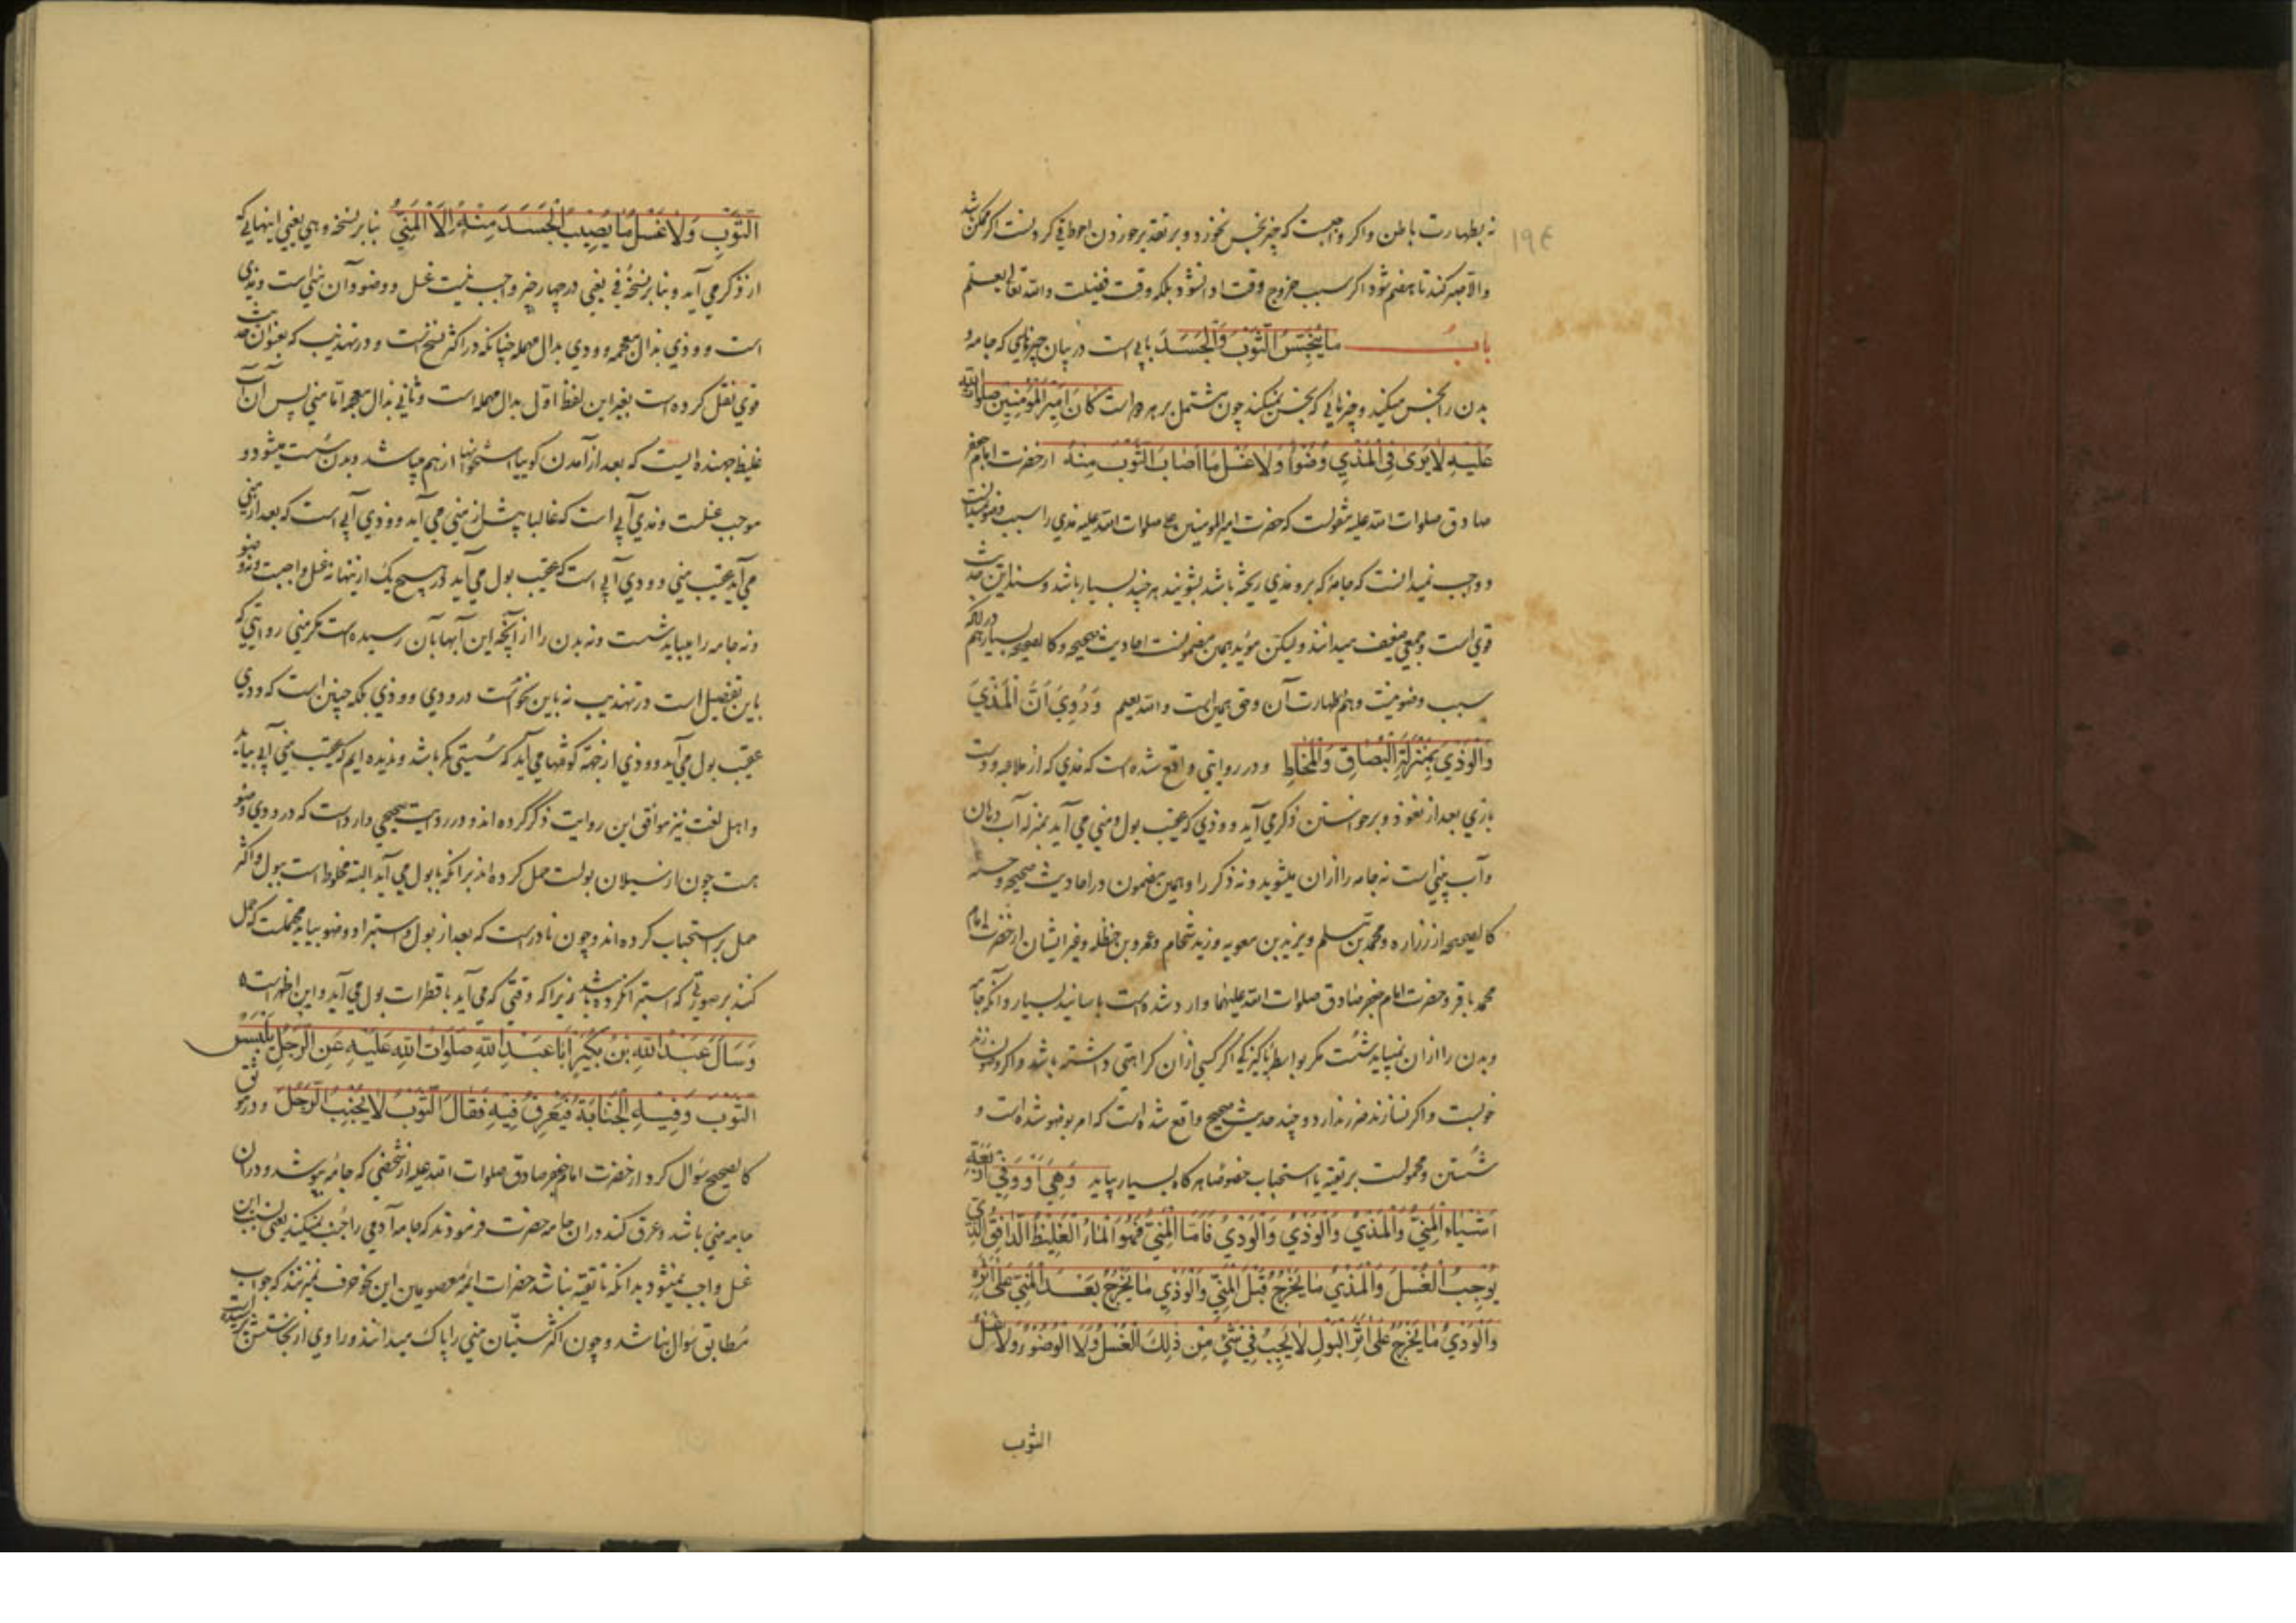 نه بطهارت باطن واکر واجبست که چیز نجس نخورد و بر تقدیر خوردن احوط قی کردنست اکر ممکن باشد
والا صبر کند تا هضم شود اکر سبب خروج وقت ادا نشود بلکه وقت فضیلت والله تعالی یعلم
باب ما ینجس الثوب والجسد بابی است در بیان چیزهایی که جامه و
بدن را نجس میکند و چیزهایی که نجس نمیکند چون مشتمل بر هر دو است کان امیر المؤمنین صلوات الله
علیه لا یری فی المذی وضوا ولا غسل ما اصاب الثوب منه از حضرت امام جعفر
صادق صلوات الله علیه منقولست که حضرت امیر المومنین علی صلوات الله علیه مذی را سبب وضو نمیدانست
و واجب نمیدانست که جامه که برو مذی ریخته باشد بشویند هر چند بسیار باشد و سند این حدیث
قوی است و جمعی ضعیف میدانند ولیکن مؤید همین مضمونست احادیث صحیحه و کالصحیحه بسیار هم در آنکه
سبب وضو نیست و هم طهارت آن و حق همین است والله یعلم وروی ان المذی
والوذی بمنزلة البصاق والمخاط و در روایتی واقع شده است که مذی که از ملاعبه و دست
بازی بعد از نعوذ و برخواستن ذکر می آید و وذی که عقیب بول و منی می آید بمنزله آب دهان
و آب بینی است نه جامه را ازان میشوید و نه ذکر را و همین مضمون در احادیث صحیحه و حسنه
کالصحیحه از زراره و محمد بن مسلم و یزید بن معویه و زید شحام و عمرو بن حنظله و غیر ایشان از حضرت امام
محمد باقر و حضرت امام جعفر صادق صلوات الله علیهما وارد شده است باسانید بسیار و آنکه جامه
و بدن را ازان نمیباید شست مکر بواسطه پاکیزکی اکر کسی ازان کراهتی داشته باشد واکر وضو بسازند
خوبست واکر نسازند ضرر ندارد و چند حدیث صحیح واقع شده است که امر بوضو شده است و
شستن و محمولست بر تقیه یا استحباب خصوصا هر کاه بسیار بیاید وهی او وفی اربعة
اشیاء المنی والمذی والوذی والودی فاما المنی فهو الماء الغلیظ الدافق الذی
یوجب الغسل والمذی ما یخرج قبل المنی والوذی ما یخرج بعد المنی علی اثره
والودی ما یخرج علی اثر البول لا یجب فی شئ من ذلک الغسل ولا الوضوء ولا غسل
الثوب
الثوب ولا غسل ما یصیب الجسد منه الا المنی بنابر نسخه وهی یعنی اینهایی که
از ذکر می آید و بنابر نسخه فی یعنی در چهار چیز واجب نیست غسل و وضو و آن منی است و مذی
است و وذی بذال معجمه و ودی بدال مهمله چنانکه در اکثر نسخ است و در تهذیب که بعنوان حدیث
قوی نقل کرده است بغیر این لفظ اولی بدال مهمله است و ثانی بذال معجمه اما منی پس آن آب
غلیظ جهنده ایست که بعد از آمدن کوییا استخوانها از هم میپاشد و بدن سست میشود و
موجب غسلست و مذی آبی است که غالبا پیش از منی می آید و وذی آبی است که بعد از منی
می آید عقیب منی و ودی آبی است که عقیب بول می آید در هیچ یک از اینها نه غسل واجبست و نه وضو
و نه جامه را میباید شست و نه بدن را از آنچه این آبها بآن رسیده است مکر منی روایتی که
باین تفصیل است در تهذیب نه باین نحو است در ودی و وذی بلکه چنین است که ودی
عقیب بول می آید و وذی از جهة کوشها می آید که سستی مکر باشد و ندیده ایم که عقیب منی آبی بیاید
و اهل لغت نیز موافق این روایت ذکر کرده اند و در روایت صحیحی وارد است که در ودی وضو
هست چون از سیلان بولست حمل کرده اند بر آنکه با بول می آید البته مخلوط است ببول و اکثر
حمل بر استحباب کرده اند و چون نادر است که بعد از بول و استبرا و وضو بیاید محتملست که حمل
کنند بر صورتی که استبرا نکرده باشد زیرا که وقتی که می آید با قطرات بول می آید و این اظهر است
وسأل عبد الله بن بکیر ابا عبد الله صلوات الله علیه عن الرجل یلبس
الثوب وفیه الجنابة فیعرق فیه فقال الثوب لا یجنب الرجل و در موثق
کالصحیح سؤال کرد از حضرت امام جعفر صادق صلوات الله علیه از شخصی که جامه بپوشد و دران
جامه منی باشد و عرق کند دران جامه حضرت فرمودند که جامه آدمی را جنب نمیکند یعنی بسبب این
غسل واجب نمیشود بدانکه تا تقیه نباشد حضرات ایمه معصومین این نحو حرف نمیزنند که جواب
مطابق سؤال نباشد و چون اکثر سنیان منی را پاک میدانند و راوی از نجاستش پرسیده است